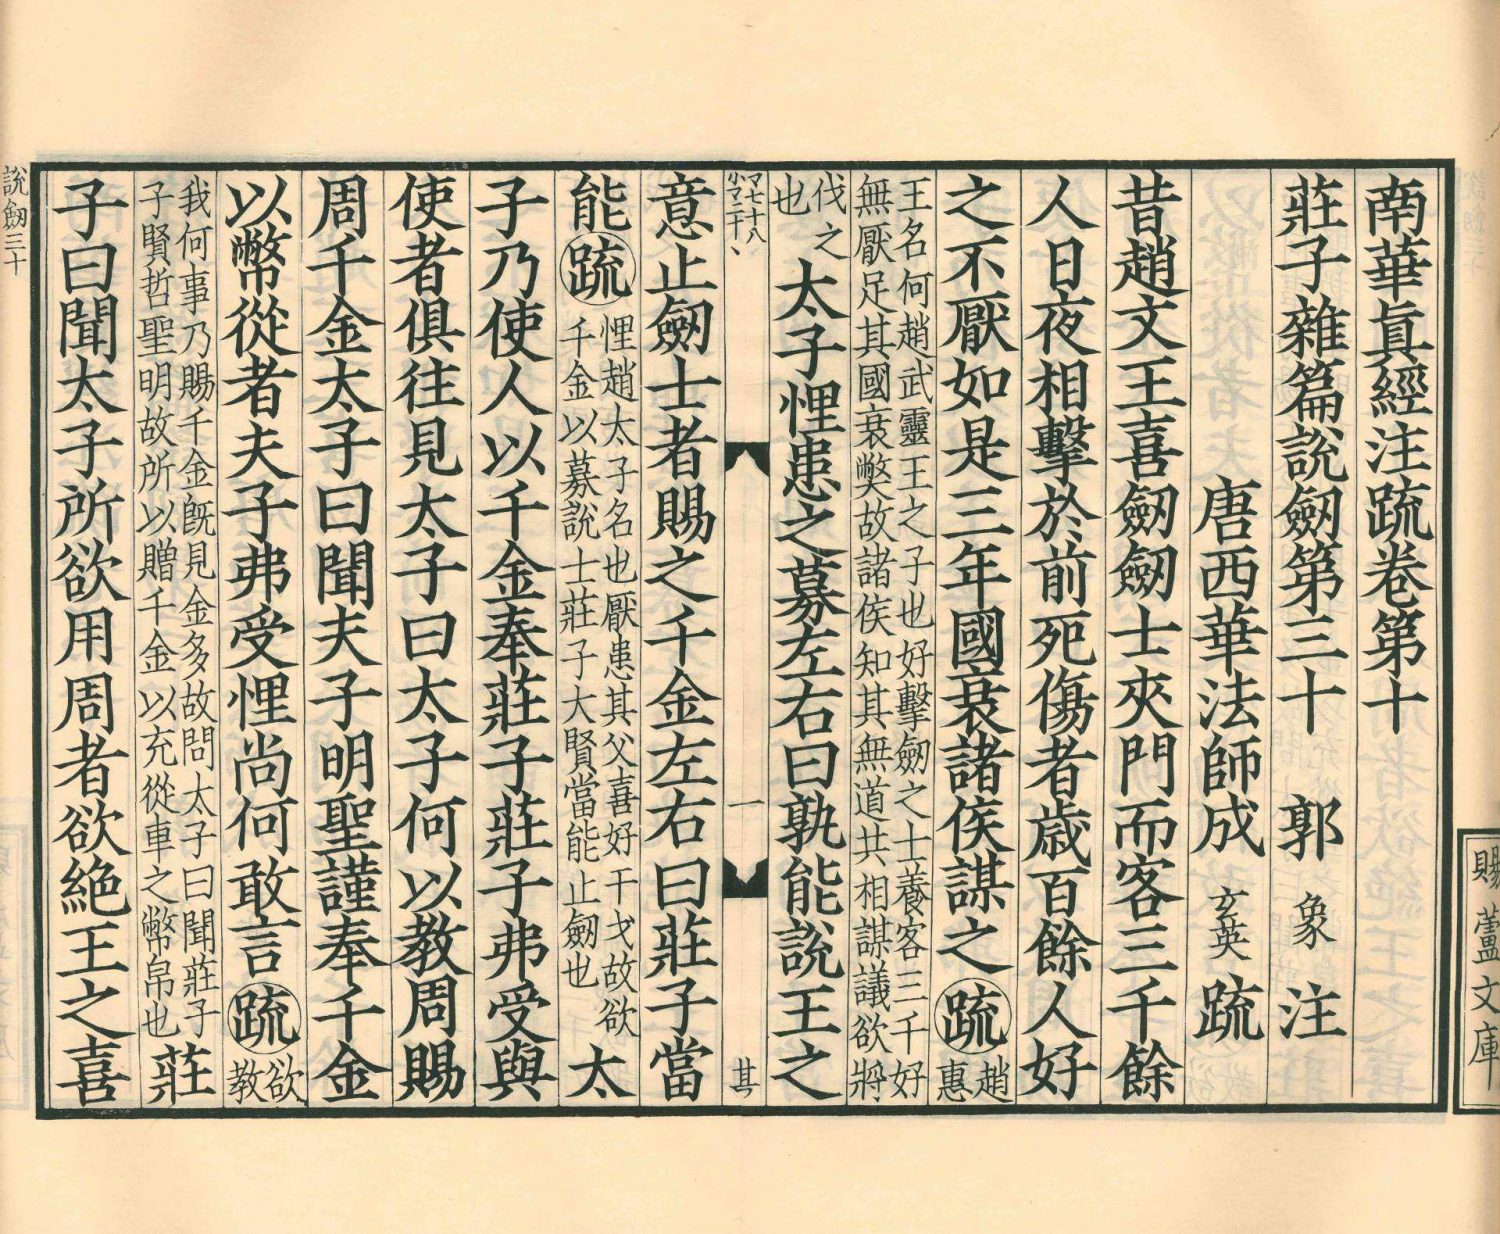 南華眞經注疏卷第十
莊子雜篇說劒第三十　郭象注
唐西華法師成玄英疏
昔趙文王喜劒劒士夾門而客三千餘
人日夜相擊於前死傷者歲百餘人好
之不厭如是三年國衰諸侯謀之疏趙惠
王名何趙武靈王之子也好擊劒之士養客三千好
無厭足其國衰弊故諸侯知其無道共相謀議欲將
伐之也太子悝患之募左右曰孰能說王之
意止劒士者賜之千金左右曰莊子當
能疏悝趙太子名也厭患其父喜好干戈故欲
千金以募說士莊子大賢當能止劒也太
子乃使人以千金奉莊子莊子弗受與
使者俱往見太子曰太子何以教周賜
周千金太子曰聞夫子明聖謹奉千金
以幣從者夫子弗受悝尚何敢言疏欲教
我何事乃賜千金旣見金多故問太子曰聞莊子
子賢哲聖明故所以贈千金以充從車之幣帛也莊
子曰聞太子所欲用周者欲絕王之喜
說劒三十
一
賜蘆文庫